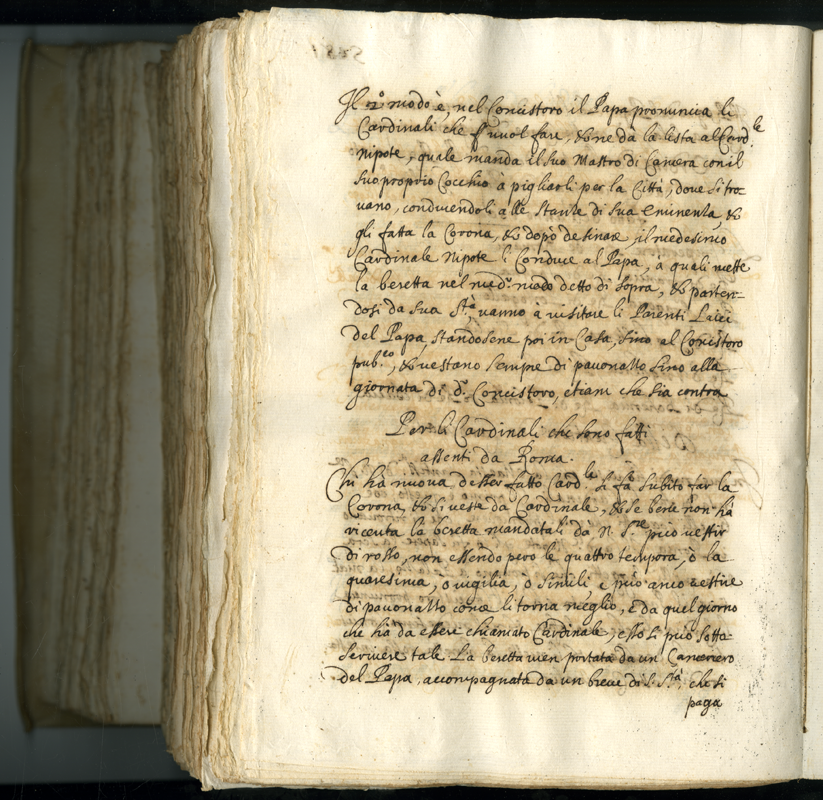 Il 2.º modo è, nel Concistoro il Papa pronuncia li
Cardinali che vuol fare, & ne dà la lista al Card.le
Nipote, quale manda il suo Mastro di Camera con il
suo proprio Cocchio à pigliarli per la Città, dove si tro=
vano, conducendoli alle stanze di sua Eminenza, &
gli fatta la Corona, & dopò desinare, il medesimo
Cardinale Nipote li Conduce al Papa, à quali mette
la beretta nel med.º modo detto di sopra, & parten=
dosi da sua S.tà vanno à visitare li Parenti Laici
del Papa, standosene poi in Casa, sino al Concistoro
pub.co, & vestano sempre di pavonazzo sino alla
giornata di d.º Concistoro, etiam che sia contra
Per li Cardinali che sono fatti
assenti da Roma.
Chi hà nuova d'esser fatto Card.le si fà subito far la
Corona, & si veste da Cardinale, & se bene non hà
ricevuta la beretta mandatali dà N. S.re può vestir
di rosso, non essendo però le quattro tempora, ò la
quaresima, ò vigilia, ò simili, e può anco vestire
di pavonazzo come li torna meglio, e da quel giorno
che hà da essere chiamato Cardinale, esso si può sotto
scrivere tale. La beretta vien portata da un Cameriero
del Papa, accompagnata da un breve di S. S.tà, che si
paga